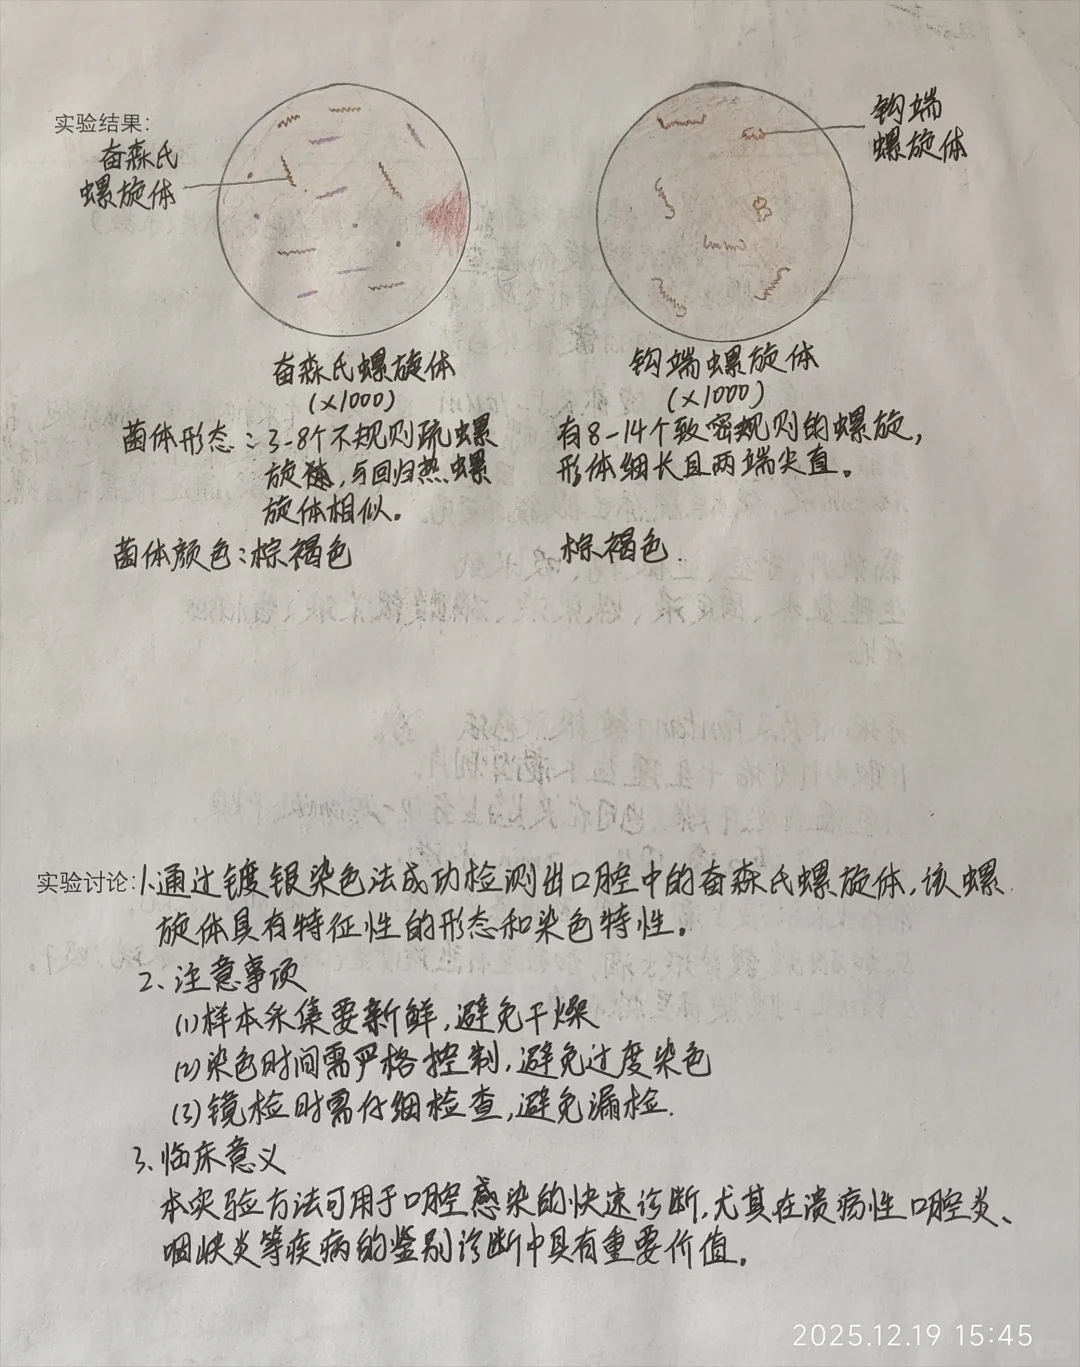 实验结果:
奋森氏
螺旋体
钩端
螺旋体
奋森氏螺旋体
(×1000)
钩端螺旋体
(×1000)
菌体形态:3-8个不规则疏螺
旋体,与回归热螺
旋体相似。
有8-14个致密规则的螺旋,
形体细长且两端尖直。
菌体颜色:棕褐色
棕褐色.
实验讨论:1.通过镀银染色法成功检测出口腔中的奋森氏螺旋体,该螺
旋体具有特征性的形态和染色特性。
2、注意事项
(1)样本采集要新鲜,避免干燥
(2)染色时间需严格控制,避免过度染色
(3)镜检时需仔细检查,避免漏检.
3、临床意义
本实验方法可用于口腔感染的快速诊断,尤其在溃疡性口腔炎、
咽峡炎等疾病的鉴别诊断中具有重要价值。
2025.12.19 15:45